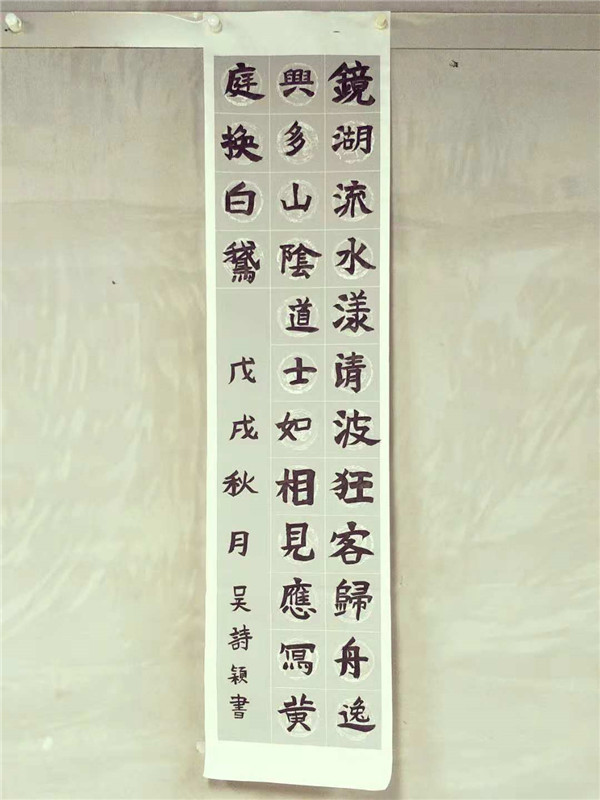 鏡湖流水漾清波狂客歸舟逸
興多山陰道士如相見應寫黄
庭换白鵝
戊戌秋月吴詩穎書